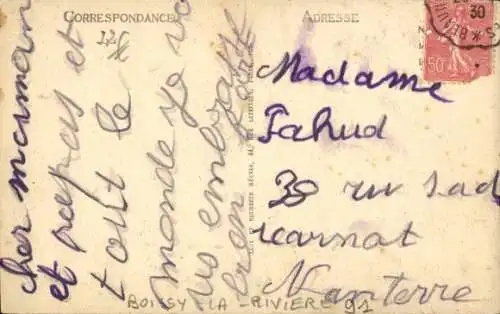 CORRESPONDANCE
ADRESSE
30
50
cher maman
et papas et
tout le
monde je vo
us embrasse
bien fort
Madame
Pahud
39 ru sad
carnot
Nanterre
BOISSY-LA-RIVIERE 91